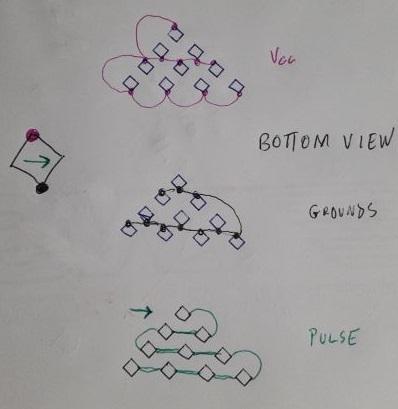 Vcc
BOTTOM VIEW
GROUNDS
PULSE